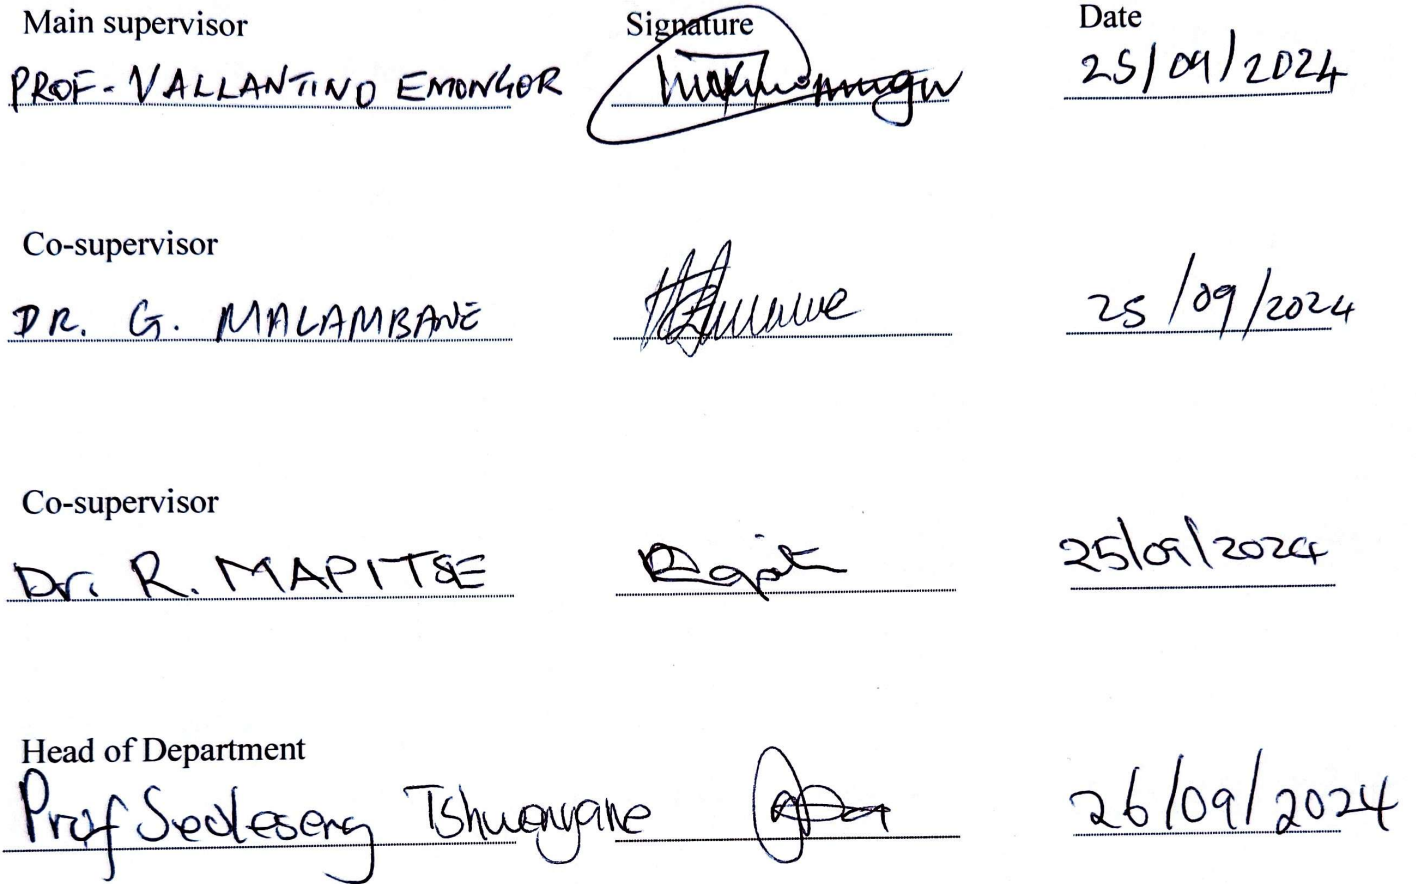 Main supervisor Signature Date
PROF. VALLANTINO EMONGOR 25/09/2024
Co-supervisor
DR. G. MALAMBANE 25/09/2024
Co-supervisor
Dr. R. MAPITSE 25/09/2024
Head of Department
Prof Seoleseng Tshwenyane 26/09/2024